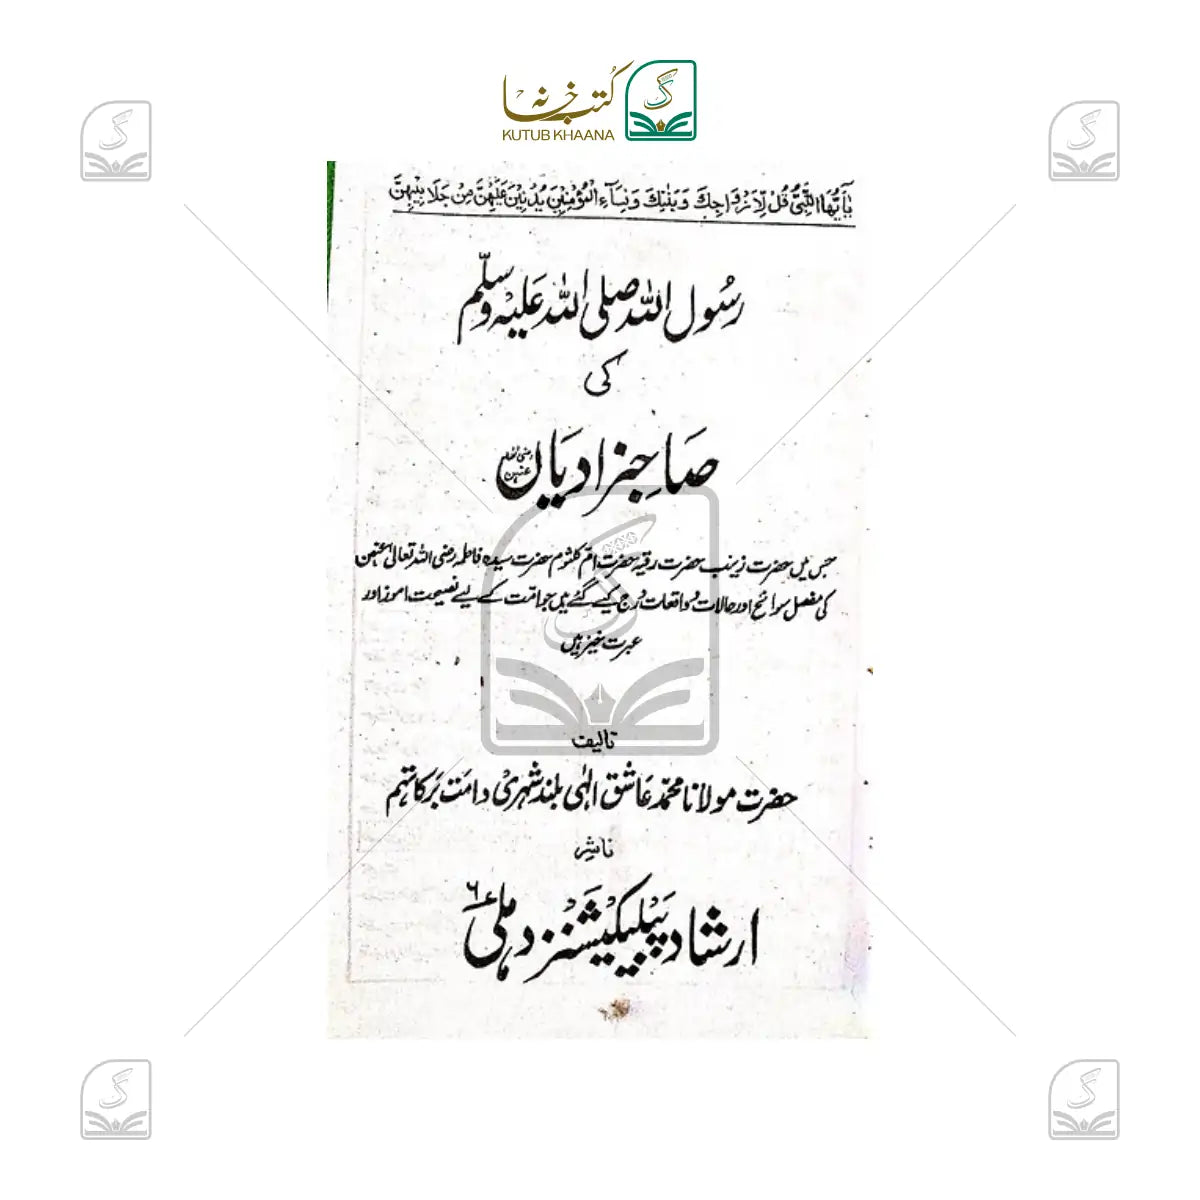 کتب خانہ
KUTUB KHAANA
یٰۤاَیُّهَا النَّبِیُّ قُلْ لِّاَزْوَاجِكَ وَبَنٰتِكَ وَنِسَآءِ الْمُؤْمِنِیْنَ یُدْنِیْنَ عَلَیْهِنَّ مِنْ جَلَابِیْبِهِنَّ
رسول اللہ صلی اللہ علیہ وسلم
کی
صاحبزادیاں رضی اللہ عنہن
جس میں حضرت زینب حضرت رقیہ حضرت ام کلثوم حضرت سیدہ فاطمہ رضی اللہ تعالیٰ عنہن
کی مفصل سوانح اور حالات و واقعات درج کیے گئے ہیں جو امت کے لیے نصیحت اموز اور
عبرت خیز ہیں
تالیف
حضرت مولانا محمد عاشق الٰہی بلند شہری دامت برکاتہم
ناشر
ارشاد پبلیکیشنز دہلی ۶